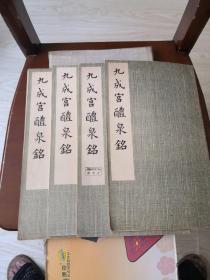 九成宮醴泉銘
九成宮醴泉銘
九成宮醴泉銘
九成宮醴泉銘